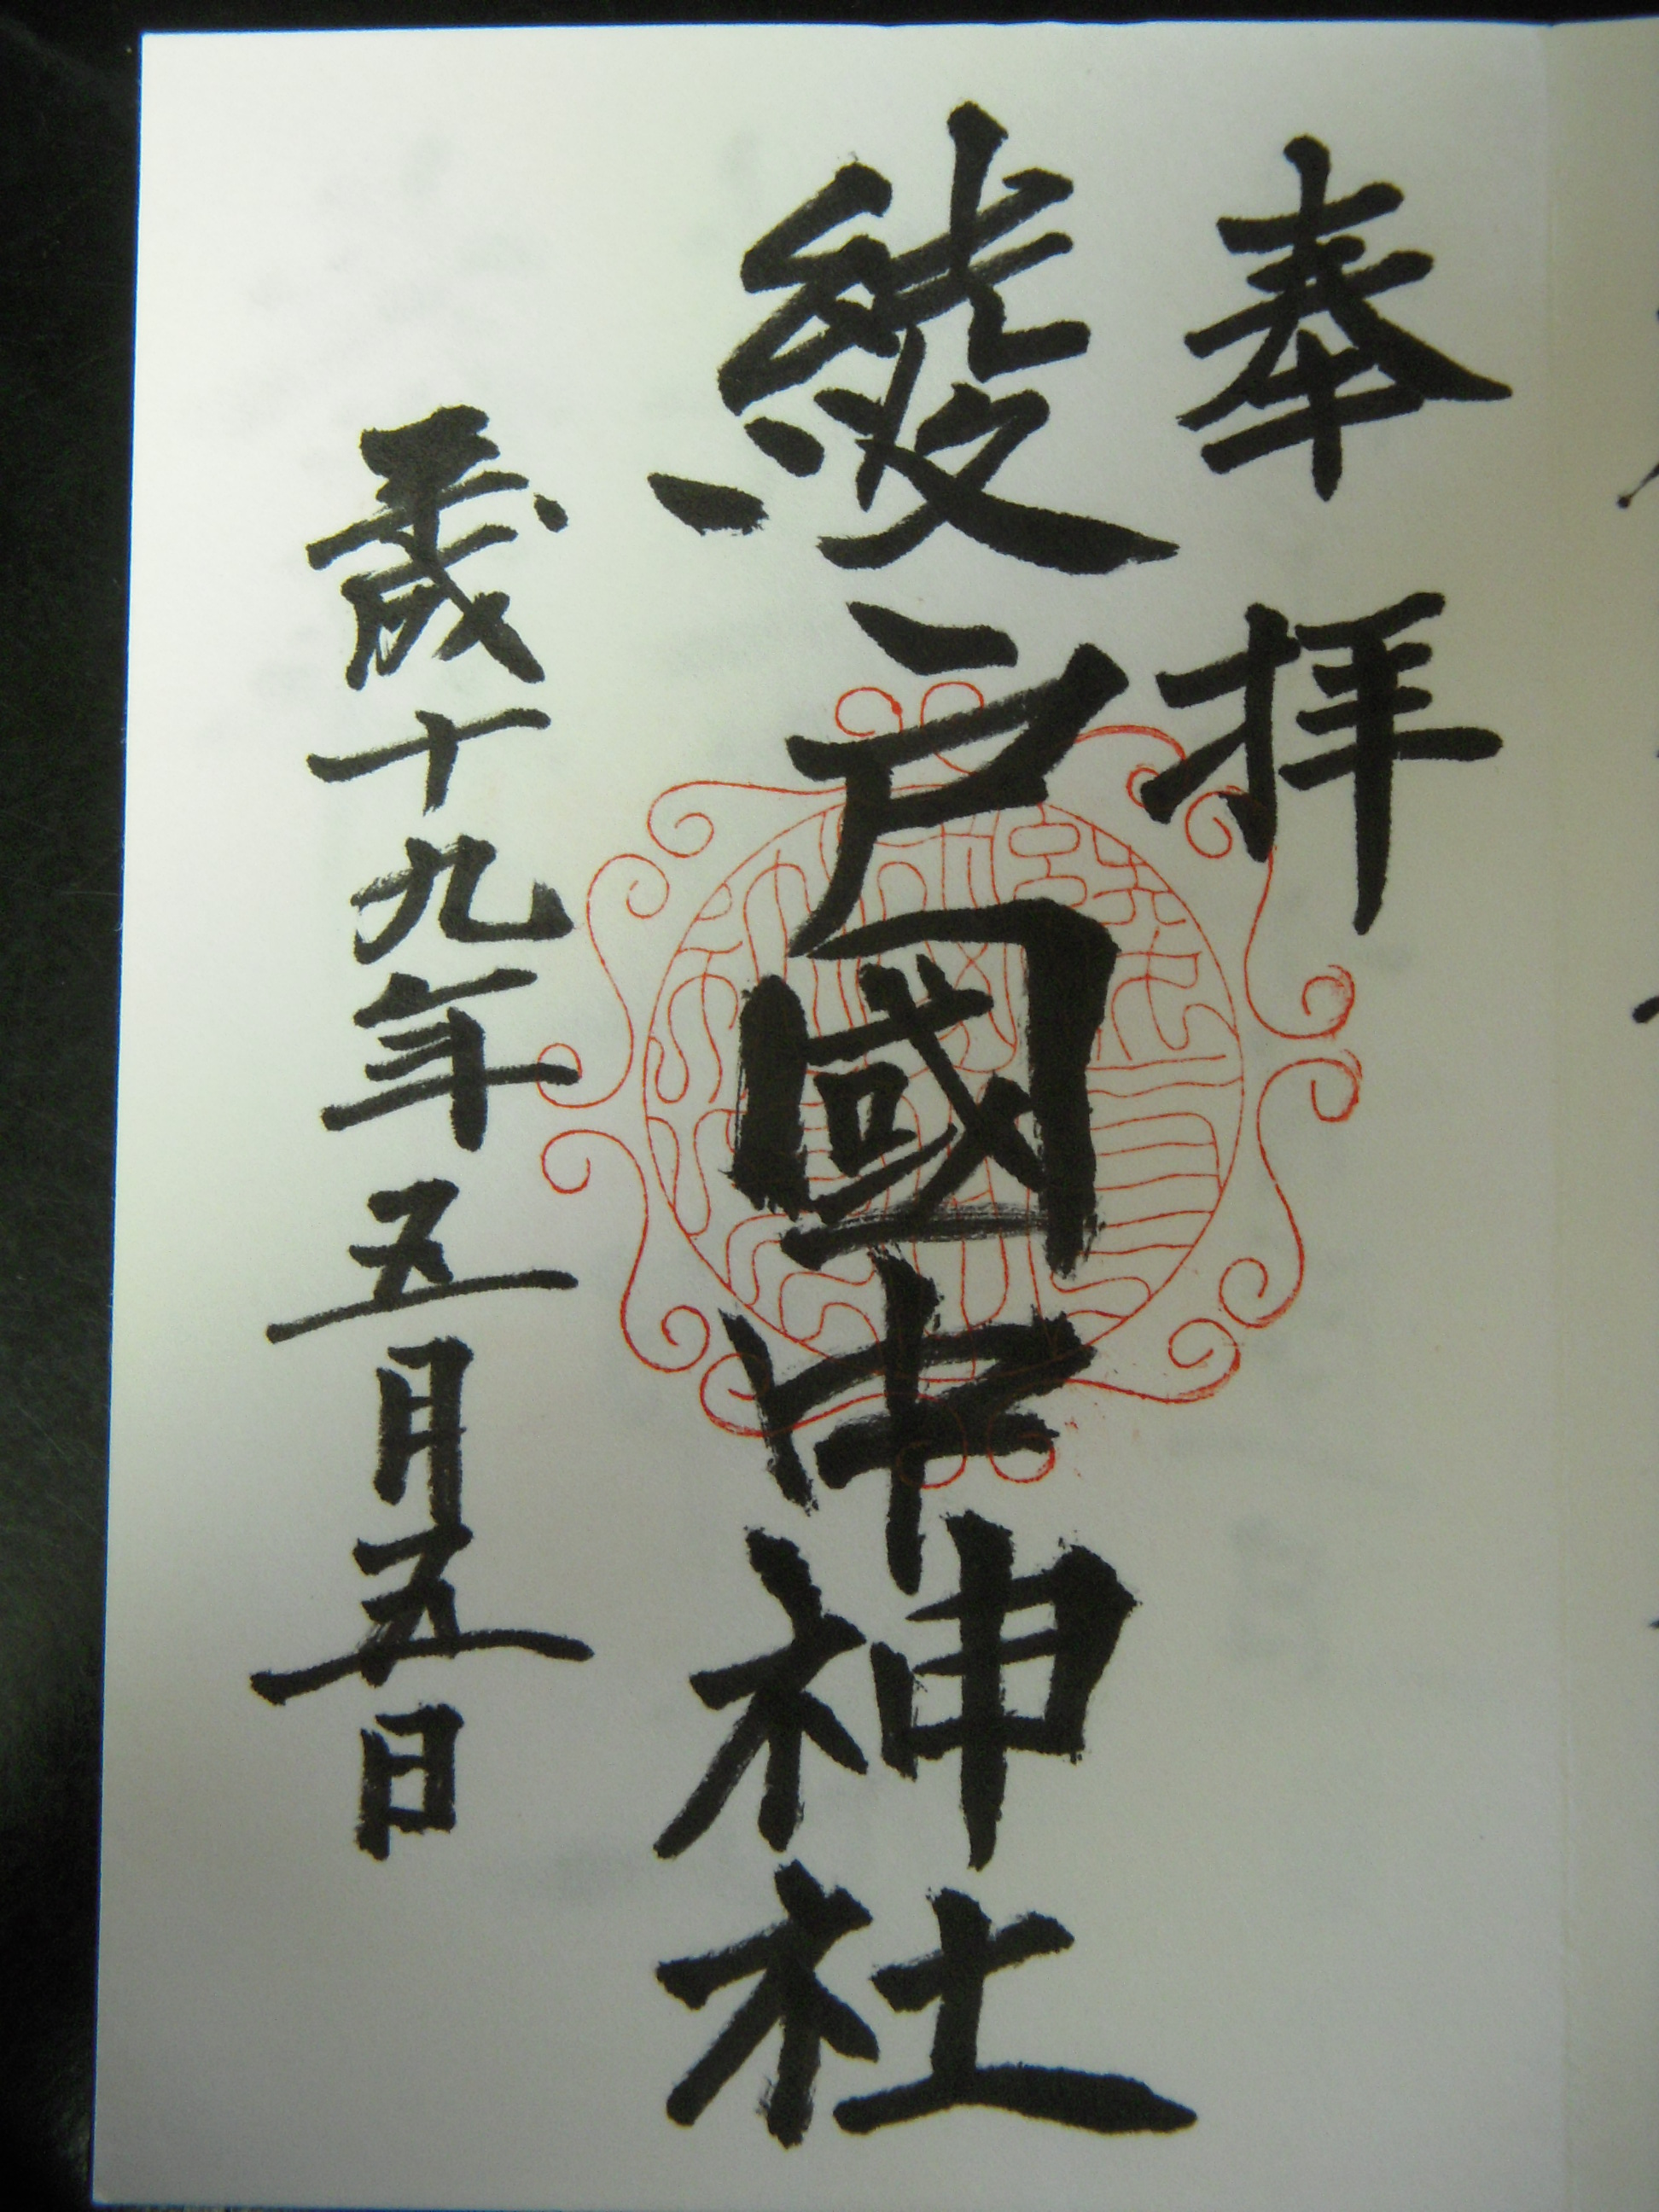 奉拝
綾戸國中神社
平成十九年五月五日